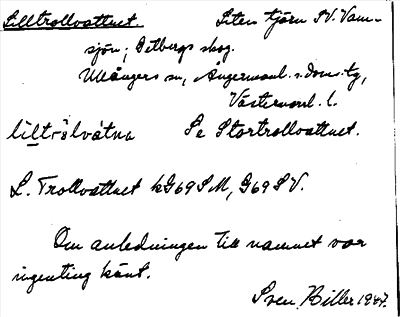 Lilltrollvattnet. Liten tjärn SV. Vam-
sjön; Getbergs skog.
Ullångers sn, Ångermanl. s. dom:s tg,
Västernorrl. l.
liltròlvátna Se Stortrollvattnet.
L. Trollvattnet kG69SM, G69SV.
Om anledningen till namnet var
ingenting känt.
Sven Biller 1947.